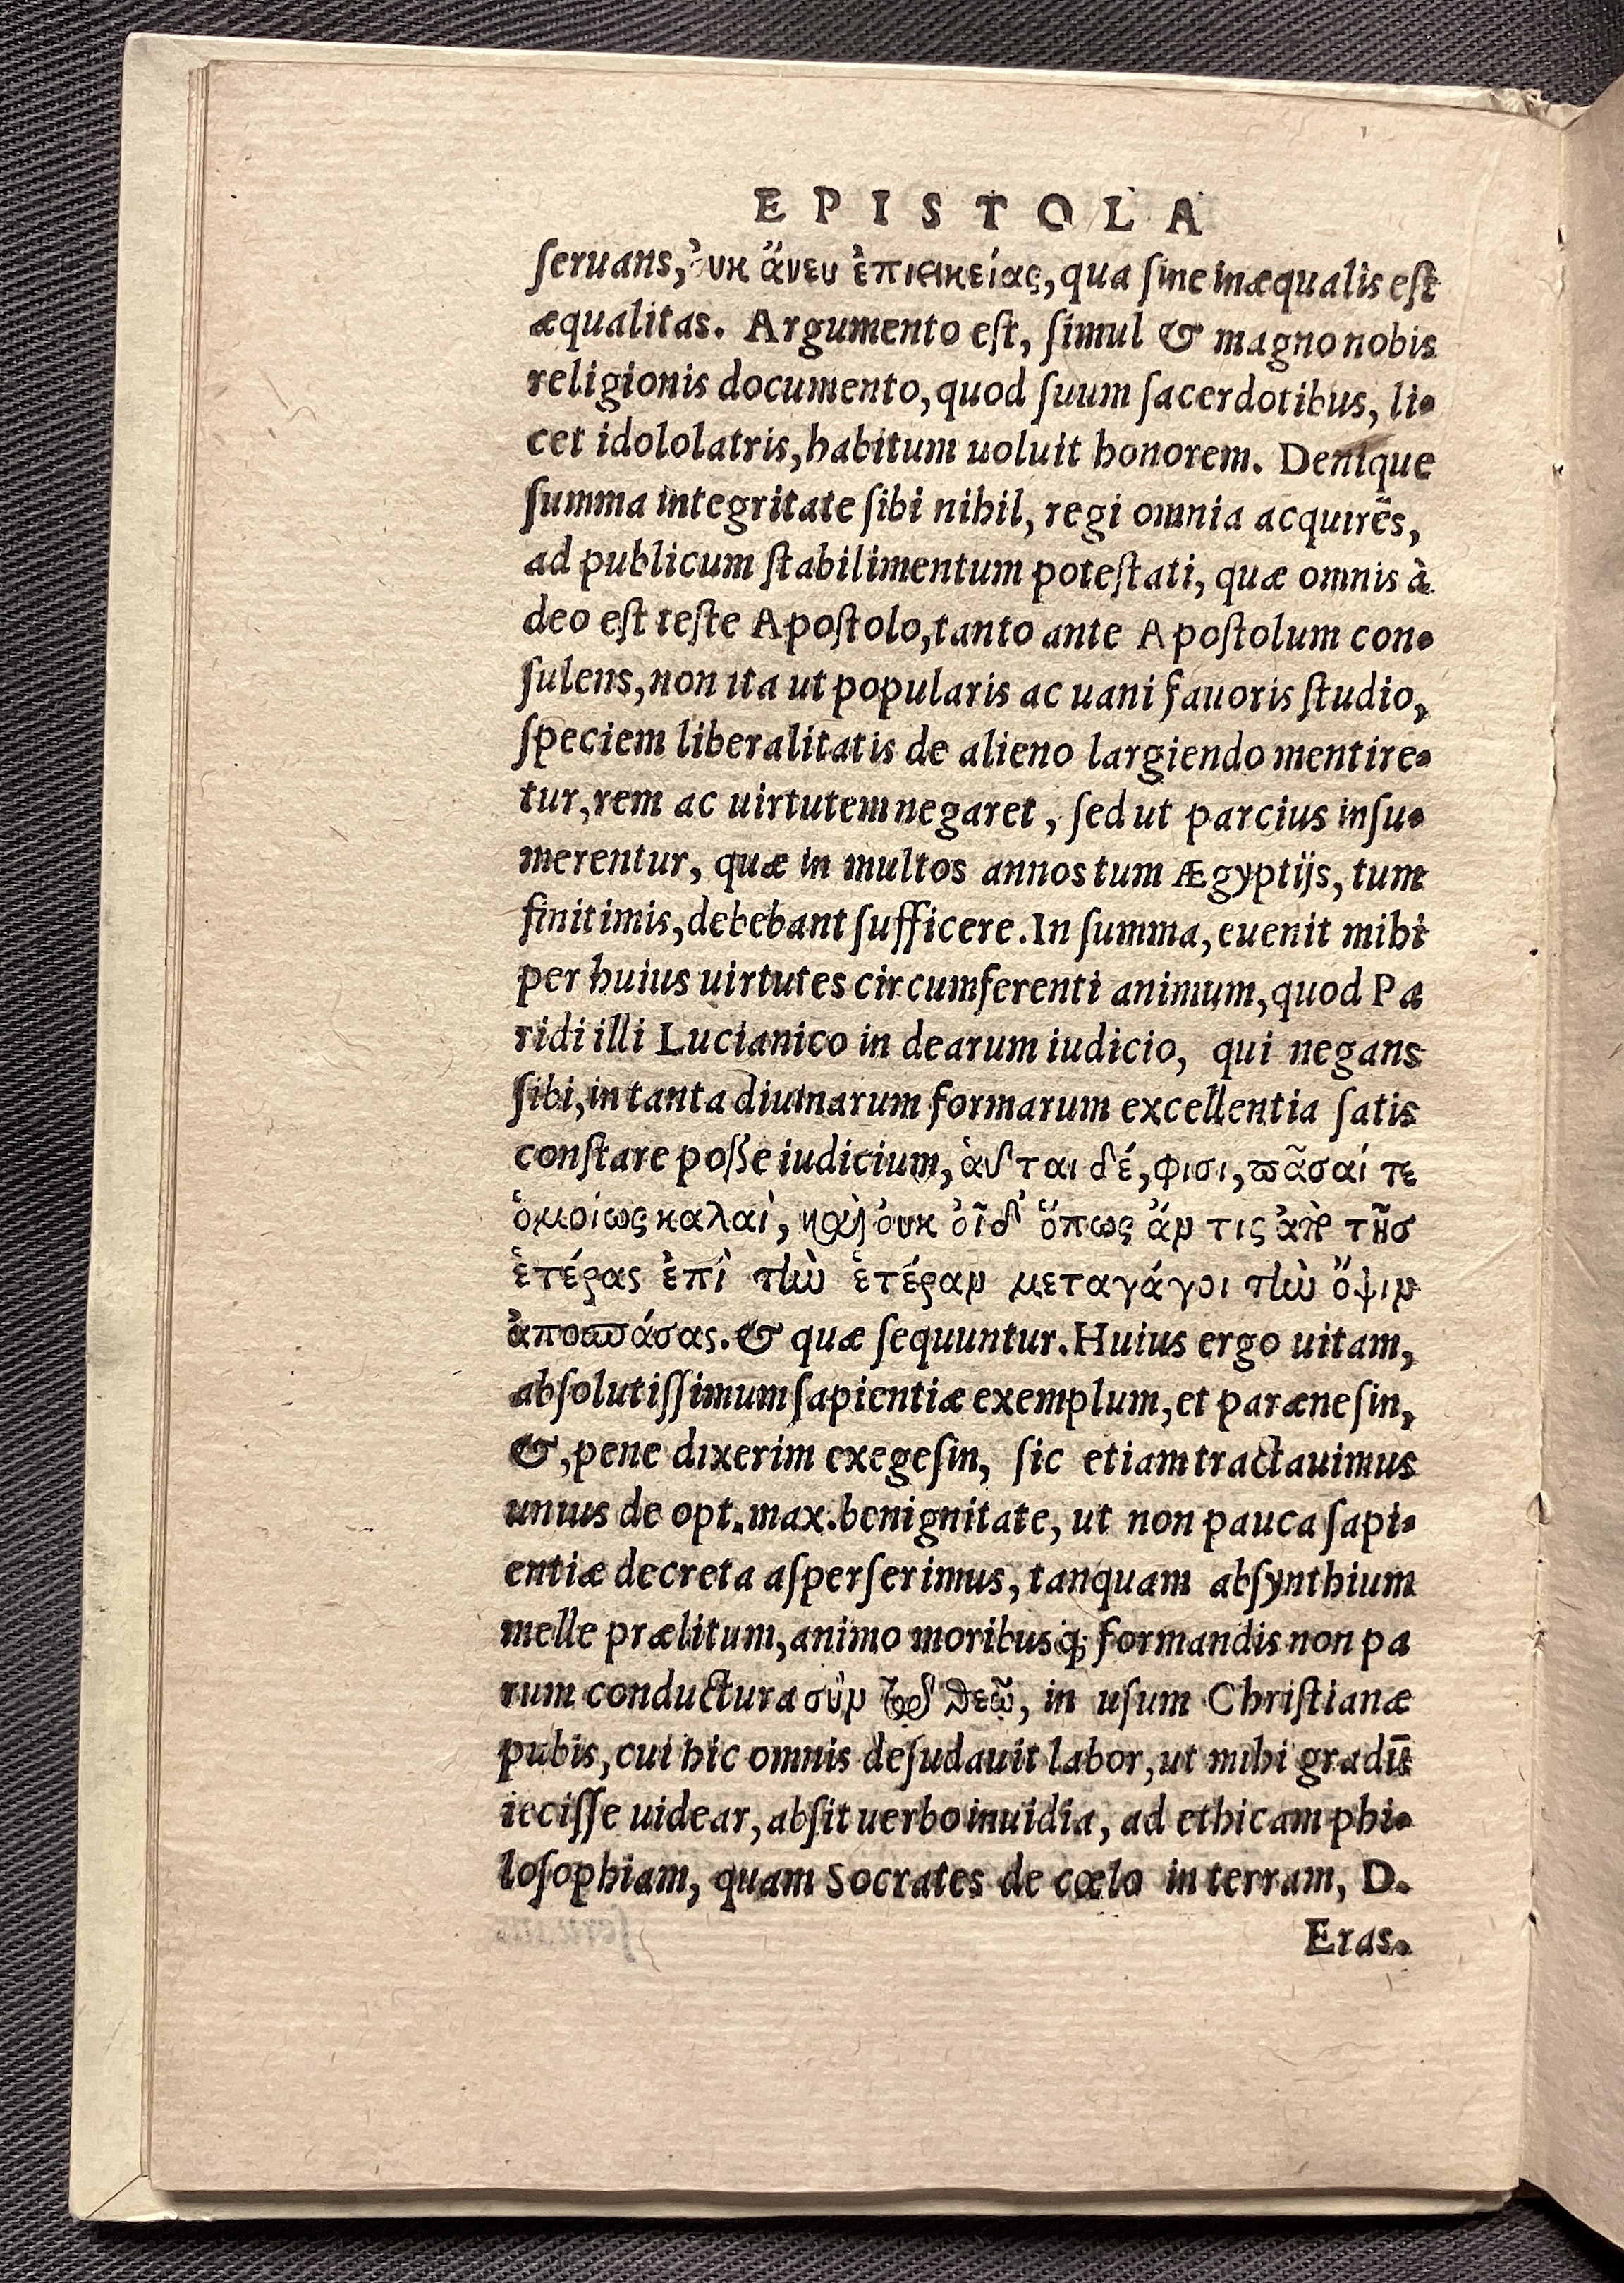 EPISTOLA
ſeruans, ὀυκ ἄνευ ἐπιεικείας, qua ſine inæqualis eſt
æqualitas. Argumento eſt, ſimul & magno nobis
religionis documento, quod ſuum ſacerdotibus, li-
cet idololatris, habitum uoluit honorem. Denique
ſumma integritate ſibi nihil, regi omnia acquirēs,
ad publicum ſtabilimentum poteſtati, quæ omnis à
deo eſt teſte Apoſtolo, tanto ante Apoſtolum con-
ſulens, non ita ut popularis ac uani fauoris ſtudio,
ſpeciem liberalitatis de alieno largiendo mentire-
tur, rem ac uirtutem negaret, ſed ut parcius inſu-
merentur, quæ in multos annos tum Ægyptijs, tum
finitimis, debebant ſufficere. In ſumma, euenit mihi
per huius uirtutes circumferenti animum, quod Pa
ridi illi Lucianico in dearum iudicio, qui negans
ſibi, in tanta diuinarum formarum excellentia ſatis
conſtare poſſe iudicium, ἀυται δέ, φισι, πᾶσαί τε
ὁμοίως καλαὶ, καὶ ὀυκ ὀῖδ' ὅπως ἄν τις ἀπὸ τῆσ
ἑτέρας ἐπὶ τὴν ἑτέραν μεταγάγοι τὴν ὄψιν
ἀποσπάσας. & quæ ſequuntur. Huius ergo uitam,
abſolutiſſimum ſapientiæ exemplum, et paræneſin,
&, pene dixerim exegeſin, ſic etiam tractauimus
unius de opt. max. benignitate, ut non pauca ſapi-
entiæ decreta aſperſerimus, tanquam abſynthium
melle prælitum, animo moribusq; formandis non pa
rum conductura σὺν τῷ θεῷ, in uſum Chriſtianæ
pubis, cui hic omnis deſudauit labor, ut mihi gradū
ieciſſe uidear, abſit uerbo inuidia, ad ethicam phi-
loſophiam, quam Socrates de cœlo in terram, D.
Eras.